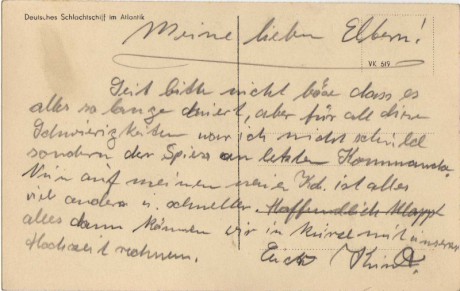 Deutsches Schlachtschiff im Atlantik
Meine lieben Eltern!
VK 519
Seit bitte nicht böse dass es
alles so lange dauert, aber für all diese
Schwierigkeiten war ich nicht schuld
sondern der Spiess am letzten Kommando.
Nun auf meinem neuen Kd. ist alles
viel anders u. schneller. Hoffendlich klappt
alles dann können wir in Kürze mit unserer
Hochzeit rechnen.